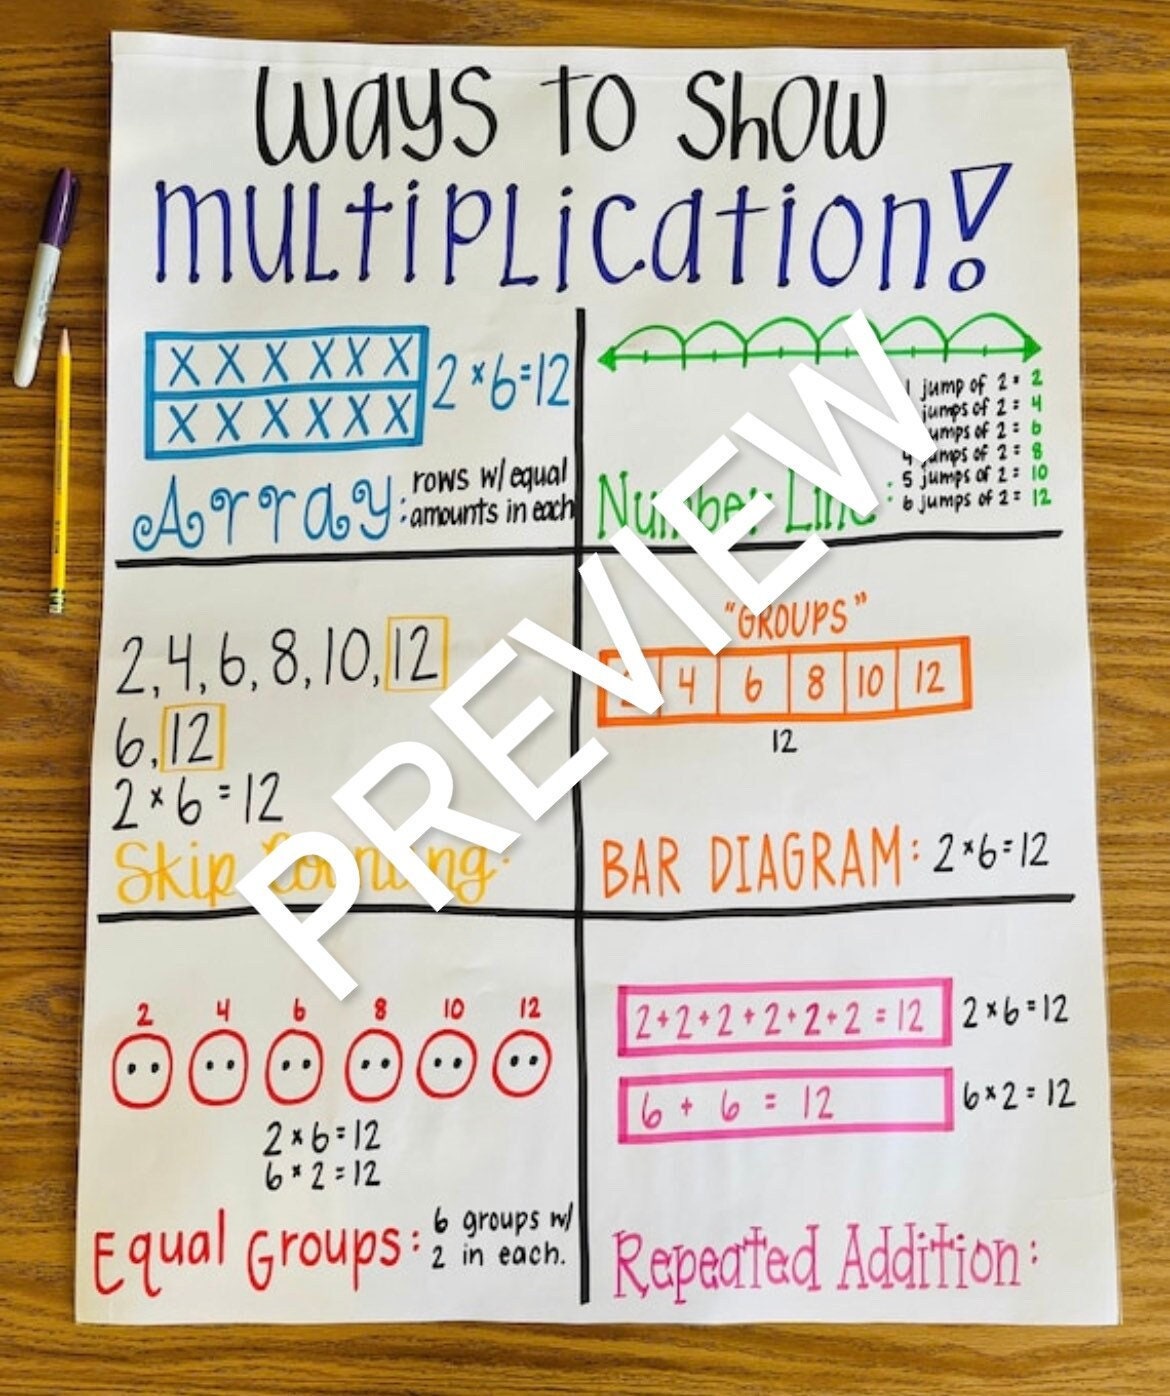 Ways to Show
Multiplication!
X X X X X X
X X X X X X
2 × 6 = 12
Array: rows w/ equal
amounts in each
1 jump of 2 = 2
jumps of 2 = 4
jumps of 2 = 6
4 jumps of 2 = 8
5 jumps of 2 = 10
6 jumps of 2 = 12
Number Line:
2, 4, 6, 8, 10, 12
6, 12
2 × 6 = 12
Skip Counting:
"GROUPS"
4 6 8 10 12
12
BAR DIAGRAM: 2 × 6 = 12
2 4 6 8 10 12
2 × 6 = 12
6 × 2 = 12
Equal Groups: 6 groups w/
2 in each.
2 + 2 + 2 + 2 + 2 + 2 = 12 2 × 6 = 12
6 + 6 = 12 6 × 2 = 12
Repeated Addition:
PREVIEW